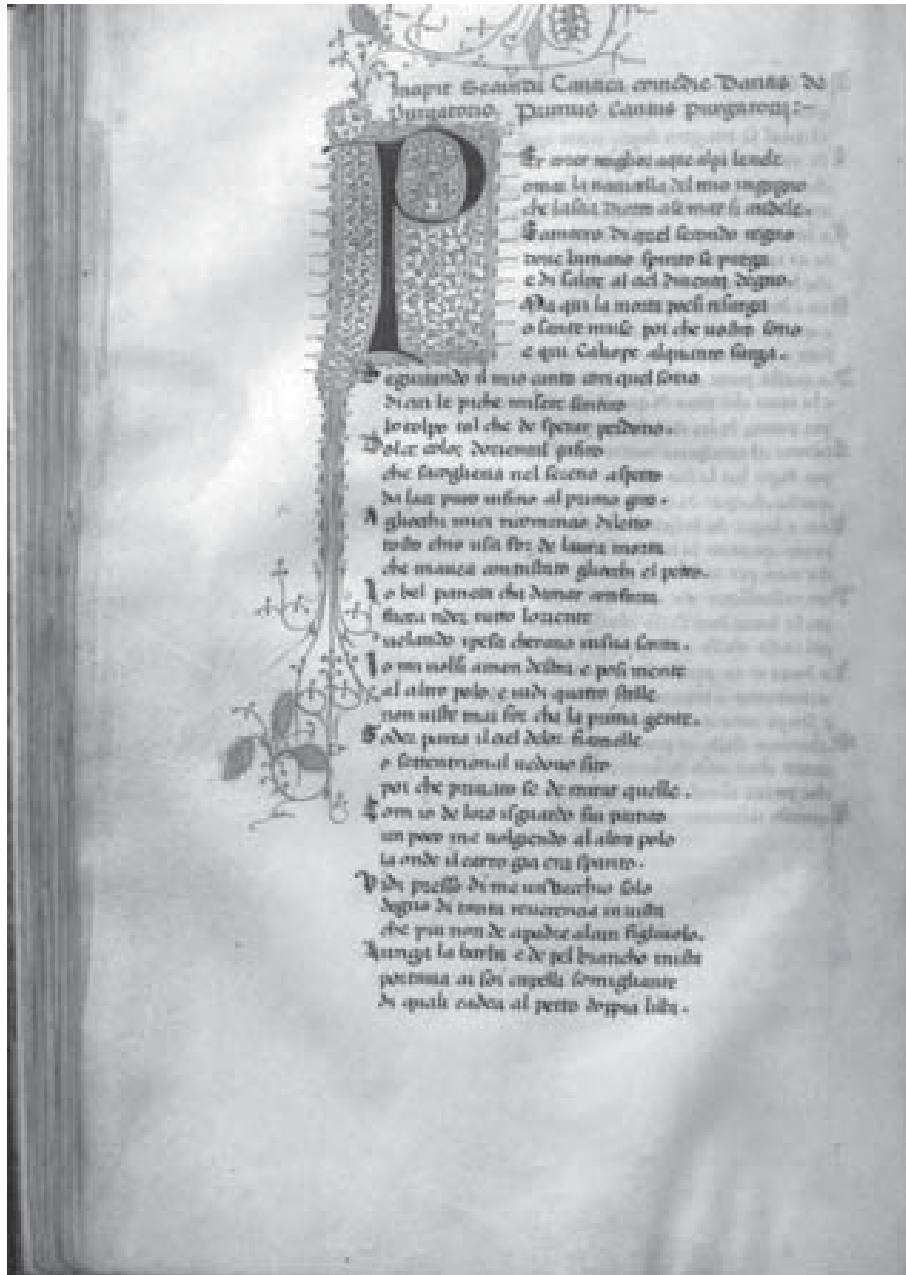 Incipit Secunda Cantica comedie Dantis de
purgatorio. Primus Cantus purgatorij:-
Per corer meglior aqua alça le uele
omai la nauicella del mio ingegno
che lassa dietro a se mar si crudele.
Cantero di quel secondo regno
doue lumano spirito si purga
e di salire al ciel diuenta degno.
Ma qui la morta poesi resurga
o sante muse poi che uostro sono
e qui Caliope alquanto surga.
Seguitando il mio canto con quel sono
di cui le piche misere sentiro
lo colpo tal che de sperar perdono.
Dolce color doriental
che surgheua nel sereno aspetto
da laer puro infino al primo giro.
A gliocchi miei ricomincio diletto
tosto chio usci for de laura morta
che mauea contristato gliocchi el petto.
Lo bel pianeta cha damar conforta
faceua rider tutto loriente
uelando i pesci cherano in sua scorta.
Io mi uolsi a man destra e posi mente
al altro polo e uidi quatro stelle
non uiste mai for cha la prima gente.
Goder parea il ciel de lor fiamelle
o settentrional uedouo sito
poi che priuato se de mirar quelle.
Com io de loro isguardo fui partito
un poco me uolgiendo al altro polo
la onde il carro gia era sparito.
Vidi presso di me un uecchio solo
degno di tanta reuerenza in uista
che piu non de a padre alcun figliuolo.
Lunga la barba e de pel biancho mista
portaua ai soi capelli somigliante
di quali cadea al petto doppia lista.